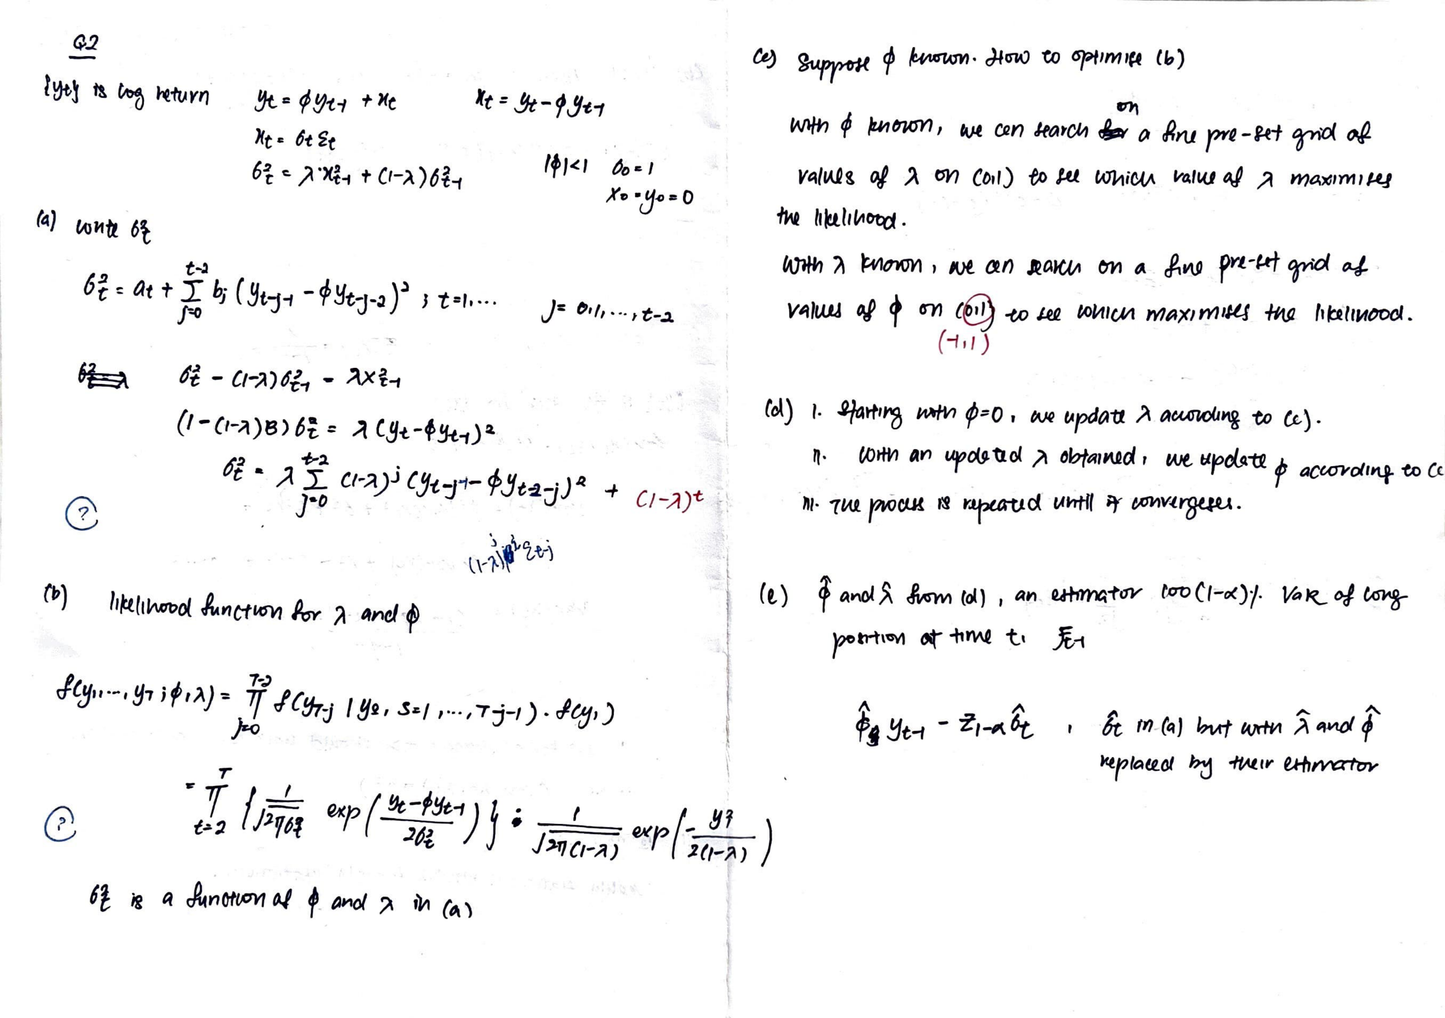 Q2
{yt} is log return
yt = ϕyt-1 + xt
xt = yt - ϕyt-1
xt = σt εt
σ²t = λ·x²t-1 + (1-λ)σ²t-1
|ϕ|<1 σ0 = 1
x0 = y0 = 0
(a) write σ²t
σ²t = at + Σ_{j=0}^{t-2} bj (yt-j-1 - ϕyt-j-2)² ; t=1,...
j = 0,1,...,t-2
σ²t - (1-λ)σ²t-1 = λx²t-1
(1-(1-λ)B)σ²t = λ(yt-ϕyt-1)²
σ²t = λ Σ_{j=0}^{t-2} (1-λ)^j (yt-j-1 - ϕyt-2-j)² + (1-λ)^t
?
(b) likelihood function for λ and ϕ
f(y1,...,yT ; ϕ,λ) = Π_{j=0}^{T-2} f(yT-j | ys, s=1,...,T-j-1) · f(y1)
= Π_{t=2}^{T} { 1/√2πσ²t exp( yt-ϕyt-1 / 2σ²t ) } · 1/√2π(1-λ) exp( - y²1 / 2(1-λ) )
?
σ²t is a function of ϕ and λ in (a)
(c) Suppose ϕ known. How to optimise (b)
With ϕ known, we can search on a fine pre-set grid of
values of λ on (0,1) to see which value of λ maximises
the likelihood.
With λ known, we can search on a fine pre-set grid of
values of ϕ on (0,1) to see which maximises the likelihood.
(-1,1)
(d) i. Starting with ϕ=0, we update λ according to (c).
ii. With an updated λ obtained, we update ϕ according to (c
iii. The process is repeated until it convergeses.
(e) ϕ̂ and λ̂ from (d), an estimator 100(1-α)% VaR of long
position at time t, Ft-1
ϕ̂ yt-1 - Z1-α σ̂t , σ̂t in (a) but with λ̂ and ϕ̂
replaced by their estimator